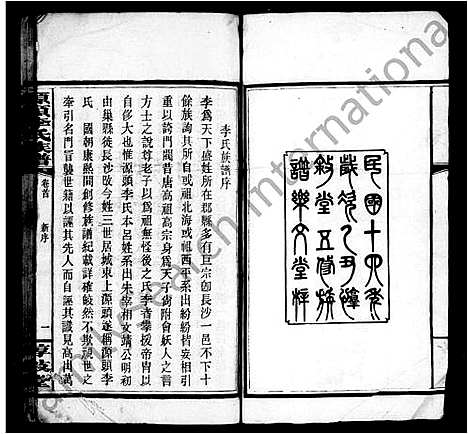 民國十四年
歲次乙丑
敘堂五修族
譜樂文堂梓
李氏族譜序
李爲天下盛姓所在郡縣多有巨宗卽長沙一邑不下十
餘族詢其所自或祖北海或祖西平系出紛紛皆妄相引
重以誇門閥昔唐高祖高宗身爲天子尚附會妖人之言
方士之說尊老子以爲祖無怪後之氏李者攀援帝冑以
自侈大也惟源頭李氏本呂姓系出朱宰相文靖公明初
由巢縣徙長沙改今姓三世居城東上源頭遂稱源頭李
氏 國朝康熙間創修族譜紀載詳確絕不欺視世之
牽引名門冒襲世籍以誣其先人而自誣其識見高出萬
源頭李氏族譜
卷首
新序
一